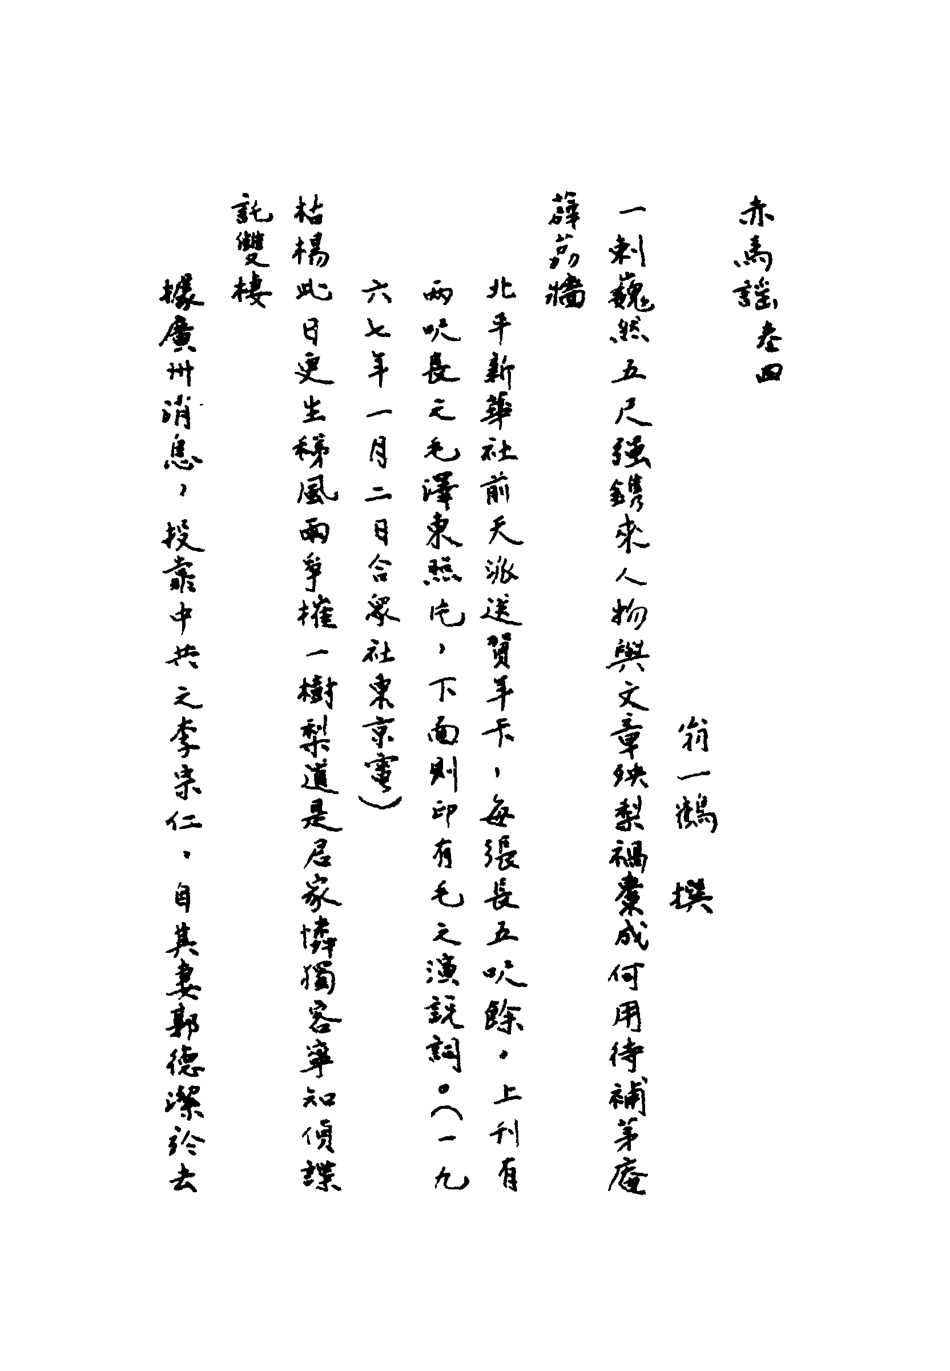 赤馬謠卷四
翁一鶴　撰
一刺巍然五尺強鐫來人物與文章殃梨禍棗成何用待補茅庵
薜荔牆
北平新華社前天派送賀年卡，每張長五呎餘。上刊有
兩呎長之毛澤東照片，下面則印有毛之演說詞。（一九
六七年一月二日合眾社東京電）
枯楊此日更生稊風雨爭摧一樹梨道是居家憐獨客寧知偵諜
託雙棲
據廣州消息，投靠中共之李宗仁，自其妻郭德潔於去